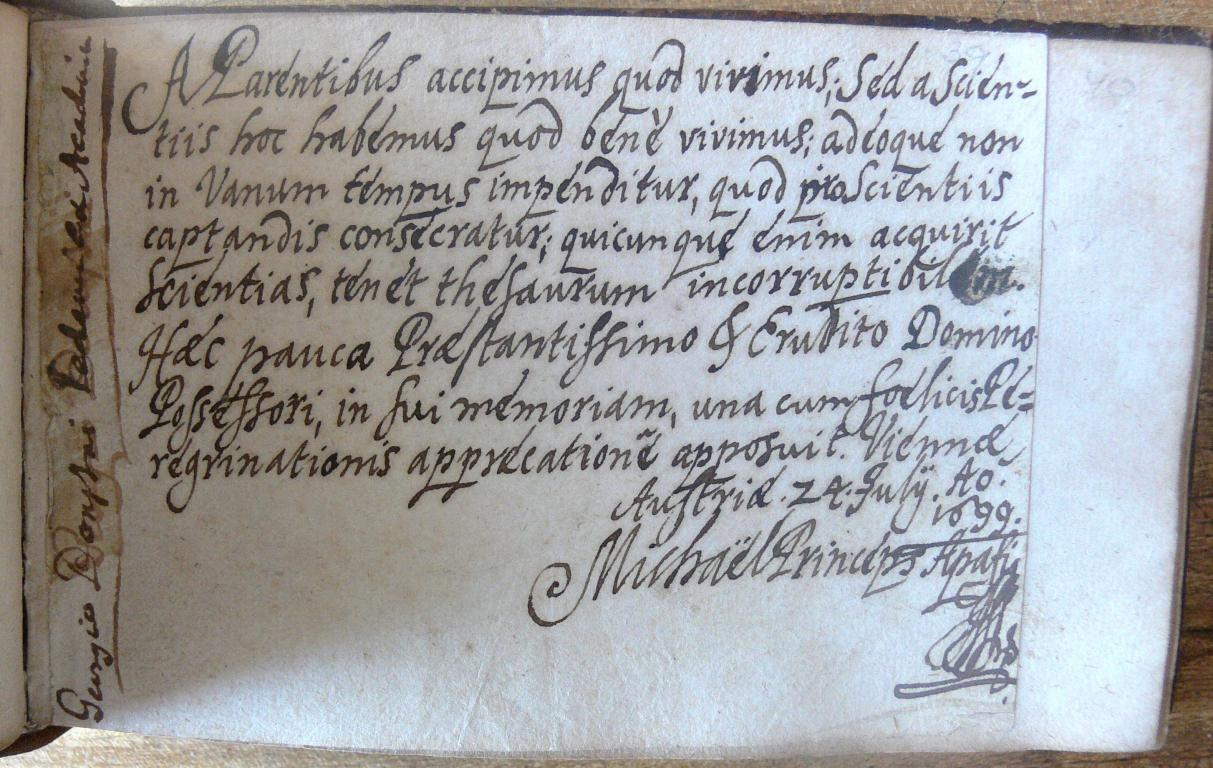 A Parentibus accipimus quod vivimus; Sed a Scien-
tiis hoc habemus quod benè vivimus; adeoque non
in Vanum tempus impenditur, quod pro Scientiis
captandis consecratur; quicunque enim acquirit
Scientias, tenet thesaurum incorruptibilem.
Hæc pauca Præstantissimo & Erudito Domino
Possessori, in sui memoriam, una cum foelicis Pe-
regrinationis apprecationē apposuit. Viennæ
Austriæ. 24. Julÿ. Ao.
1699.
Michaël Princeps Apafi
Georgio